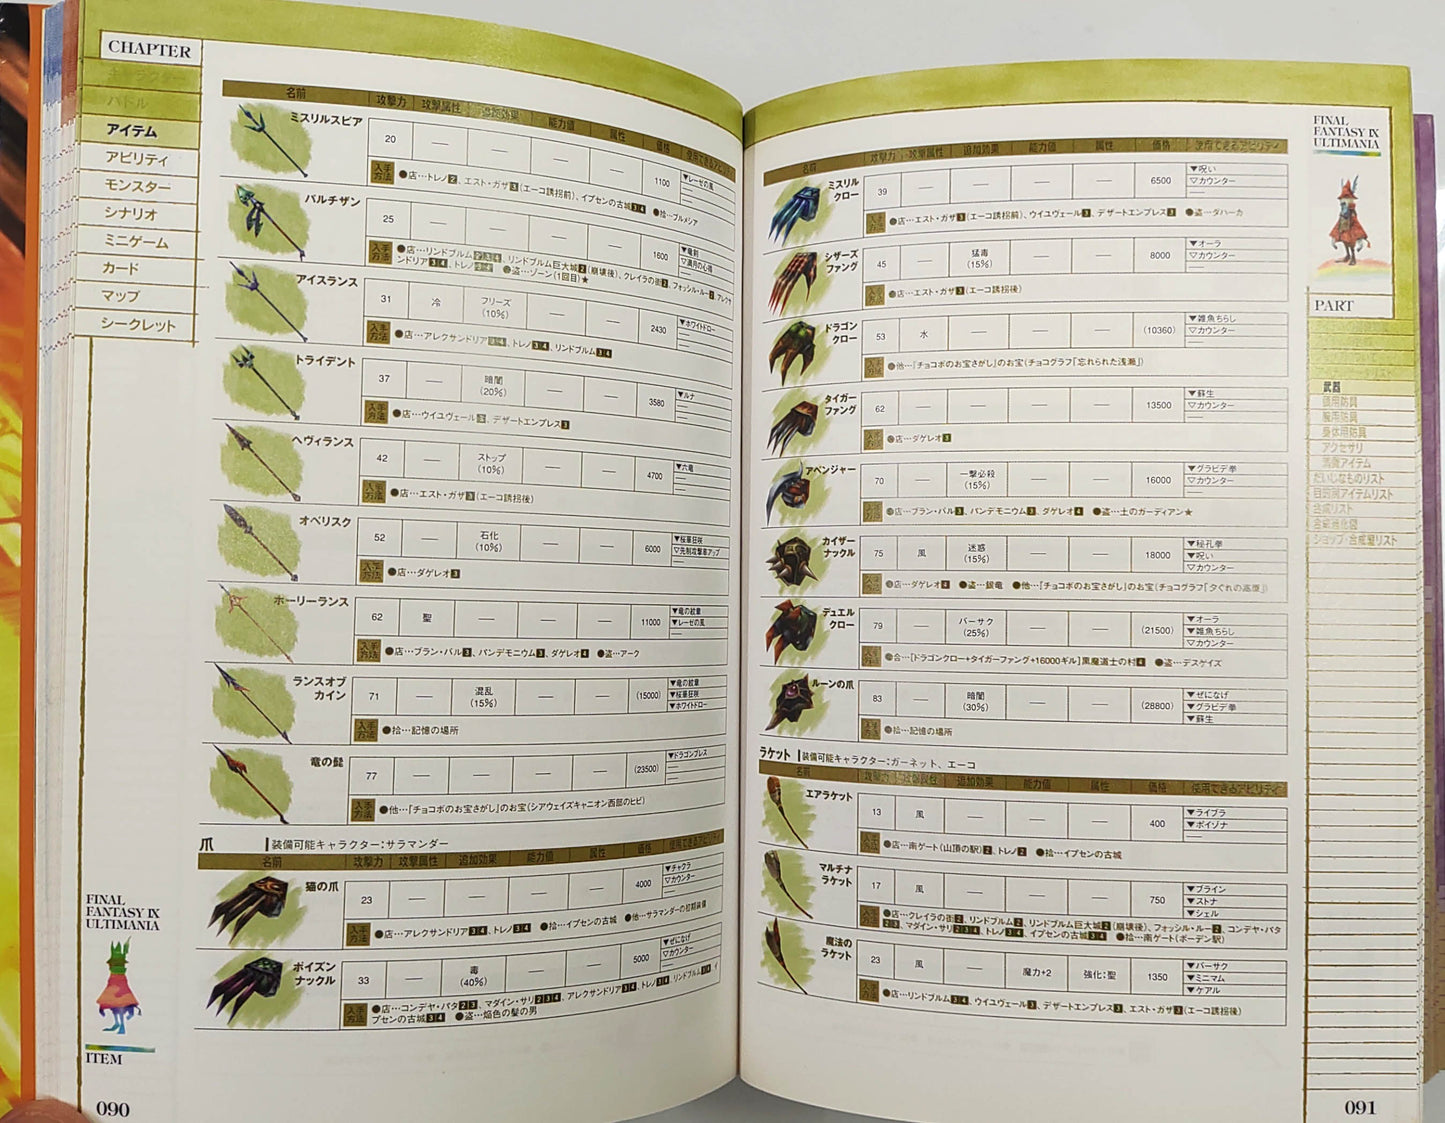 CHAPTER
キャラクター
バトル
アイテム
アビリティ
モンスター
シナリオ
ミニゲーム
カード
マップ
シークレット
名前 攻撃力 攻撃属性 追加効果 能力値 属性 価格 使用できるアビリティ
ミスリルスピア 20 ― ― ― ― 1100 ▼レーゼの風
入手方法 ●店…トレノ2、エスト・ガザ3(エーコ誘拐前)、イプセンの古城34 ●拾…ブルメシア
パルチザン 25 ― ― ― ― 1600 ▼竜剣 ▽満月の心得
入手方法 ●店…リンドブルム234、リンドブルム巨大城2(崩壊後)、クレイラの街2、フォッシル・ルー2、アレクサ
ンドリア34、トレノ24 ●盗…ゾーン(1回目)★
アイスランス 31 冷 フリーズ(10%) ― ― 2430 ▼ホワイトドロー
入手方法 ●店…アレクサンドリア34、トレノ34、リンドブルム34
トライデント 37 ― 暗闇(20%) ― ― 3580 ▼ルナ
入手方法 ●店…ウイユヴェール3、デザートエンプレス3
ヘヴィランス 42 ― ストップ(10%) ― ― 4700 ▼六竜
入手方法 ●店…エスト・ガザ3(エーコ誘拐後)
オベリスク 52 ― 石化(10%) ― ― 6000 ▼桜華狂咲 ▽先制攻撃率アップ
入手方法 ●店…ダゲレオ3
ホーリーランス 62 聖 ― ― ― 11000 ▼竜の紋章 ▼レーゼの風
入手方法 ●店…ブラン・バル3、パンデモニウム3、ダゲレオ4 ●盗…アーク
ランスオブカイン 71 ― 混乱(15%) ― ― (15000) ▼竜の紋章 ▼桜華狂咲 ▼ホワイトドロー
入手方法 ●拾…記憶の場所
竜の髭 77 ― ― ― ― (23500) ▼ドラゴンブレス
入手方法 ●他…『チョコボのお宝さがし』のお宝(シアウェイズキャニオン西部のヒビ)
爪 装備可能キャラクター:サラマンダー
名前 攻撃力 攻撃属性 追加効果 能力値 属性 価格 使用できるアビリティ
猫の爪 23 ― ― ― ― 4000 ▼チャクラ ▽カウンター
入手方法 ●店…アレクサンドリア34、トレノ34 ●拾…イプセンの古城 ●他…サラマンダーの初期装備
ポイズンナックル 33 ― 毒(40%) ― ― 5000 ▼ぜになげ ▽カウンター
入手方法 ●店…コンデヤ・パタ23、マダイン・サリ234、アレクサンドリア34、トレノ34、リンドブルム34、イ
プセンの古城34 ●盗…焔色の髪の男
FINAL
FANTASY IX
ULTIMANIA
ITEM
090
名前 攻撃力 攻撃属性 追加効果 能力値 属性 価格 使用できるアビリティ
ミスリルクロー 39 ― ― ― ― 6500 ▼呪い ▽カウンター
入手方法 ●店…エスト・ガザ3(エーコ誘拐前)、ウイユヴェール3、デザートエンプレス3 ●盗…ダハーカ
シザーズファング 45 ― 猛毒(15%) ― ― 8000 ▼オーラ ▽カウンター
入手方法 ●店…エスト・ガザ3(エーコ誘拐後)
ドラゴンクロー 53 水 ― ― ― (10360) ▼雑魚ちらし ▽カウンター
入手方法 ●他…『チョコボのお宝さがし』のお宝(チョコグラフ「忘れられた浅瀬」)
タイガーファング 62 ― ― ― ― 13500 ▼蘇生 ▽カウンター
入手方法 ●店…ダゲレオ3
アベンジャー 70 ― 一撃必殺(15%) ― ― 16000 ▼グラビデ拳 ▽カウンター
入手方法 ●店…ブラン・バル3、パンデモニウム3、ダゲレオ4 ●盗…土のガーディアン★
カイザーナックル 75 風 迷惑(15%) ― ― 18000 ▼秘孔拳 ▼呪い ▽カウンター
入手方法 ●店…ダゲレオ4 ●盗…銀竜 ●他…『チョコボのお宝さがし』のお宝(チョコグラフ「夕ぐれの高原」)
デュエルクロー 79 ― バーサク(25%) ― ― (21500) ▼オーラ ▼雑魚ちらし ▽カウンター
入手方法 ●合…[ドラゴンクロー+タイガーファング+16000ギル]黒魔道士の村4 ●盗…デスゲイズ
ルーンの爪 83 ― 暗闇(30%) ― ― (28800) ▼ぜになげ ▼グラビデ拳 ▼蘇生
入手方法 ●拾…記憶の場所
ラケット 装備可能キャラクター:ガーネット、エーコ
名前 攻撃力 攻撃属性 追加効果 能力値 属性 価格 使用できるアビリティ
エアラケット 13 風 ― ― ― 400 ▼ライブラ ▼ポイゾナ
入手方法 ●店…南ゲート(山頂の駅)2、トレノ2 ●拾…イプセンの古城
マルチナラケット 17 風 ― ― ― 750 ▼ブライン ▼ストナ ▼シェル
入手方法 ●店…クレイラの街2、リンドブルム2、リンドブルム巨大城2(崩壊後)、フォッシル・ルー2、コンデヤ・パタ
23、マダイン・サリ234、トレノ34、イプセンの古城34 ●拾…南ゲート(ボーデン駅)
魔法のラケット 23 風 ― 魔力+2 強化:聖 1350 ▼バーサク ▼ミニマム ▼ケアル
入手方法 ●店…リンドブルム34、ウイユヴェール3、デザートエンプレス3、エスト・ガザ3(エーコ誘拐後)
FINAL
FANTASY IX
ULTIMANIA
PART
武器
腕用防具
身体用防具
アクセサリ
消費アイテム
だいじなものリスト
目的別アイテムリスト
合成リスト
合成進化図
ショップ・合成屋リスト
091